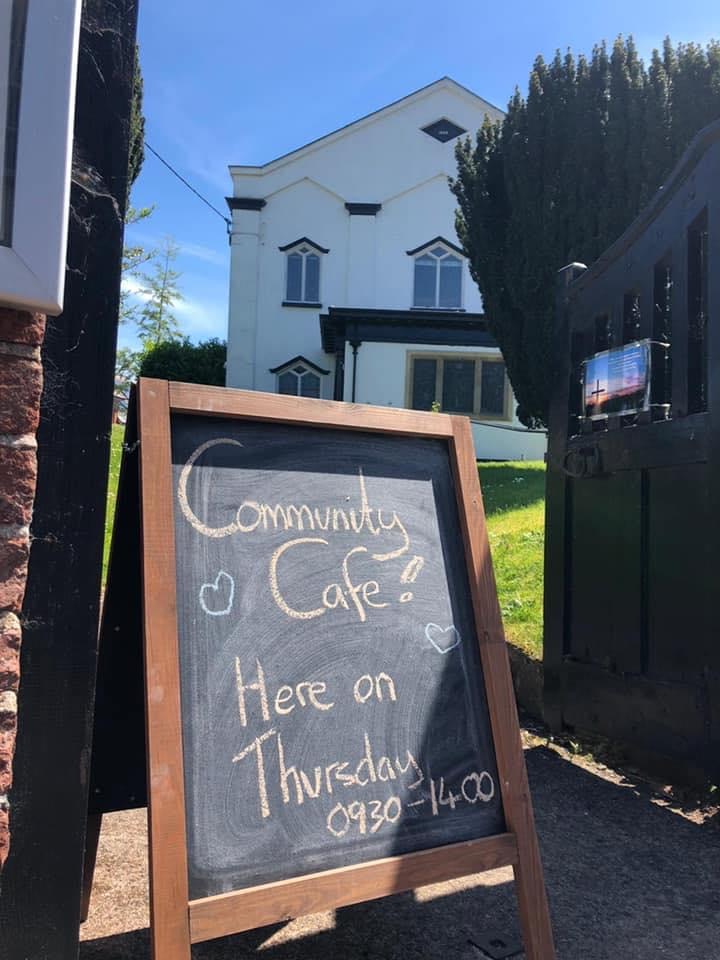 Community
Cafe!
Here on
Thursday
0930-14.00